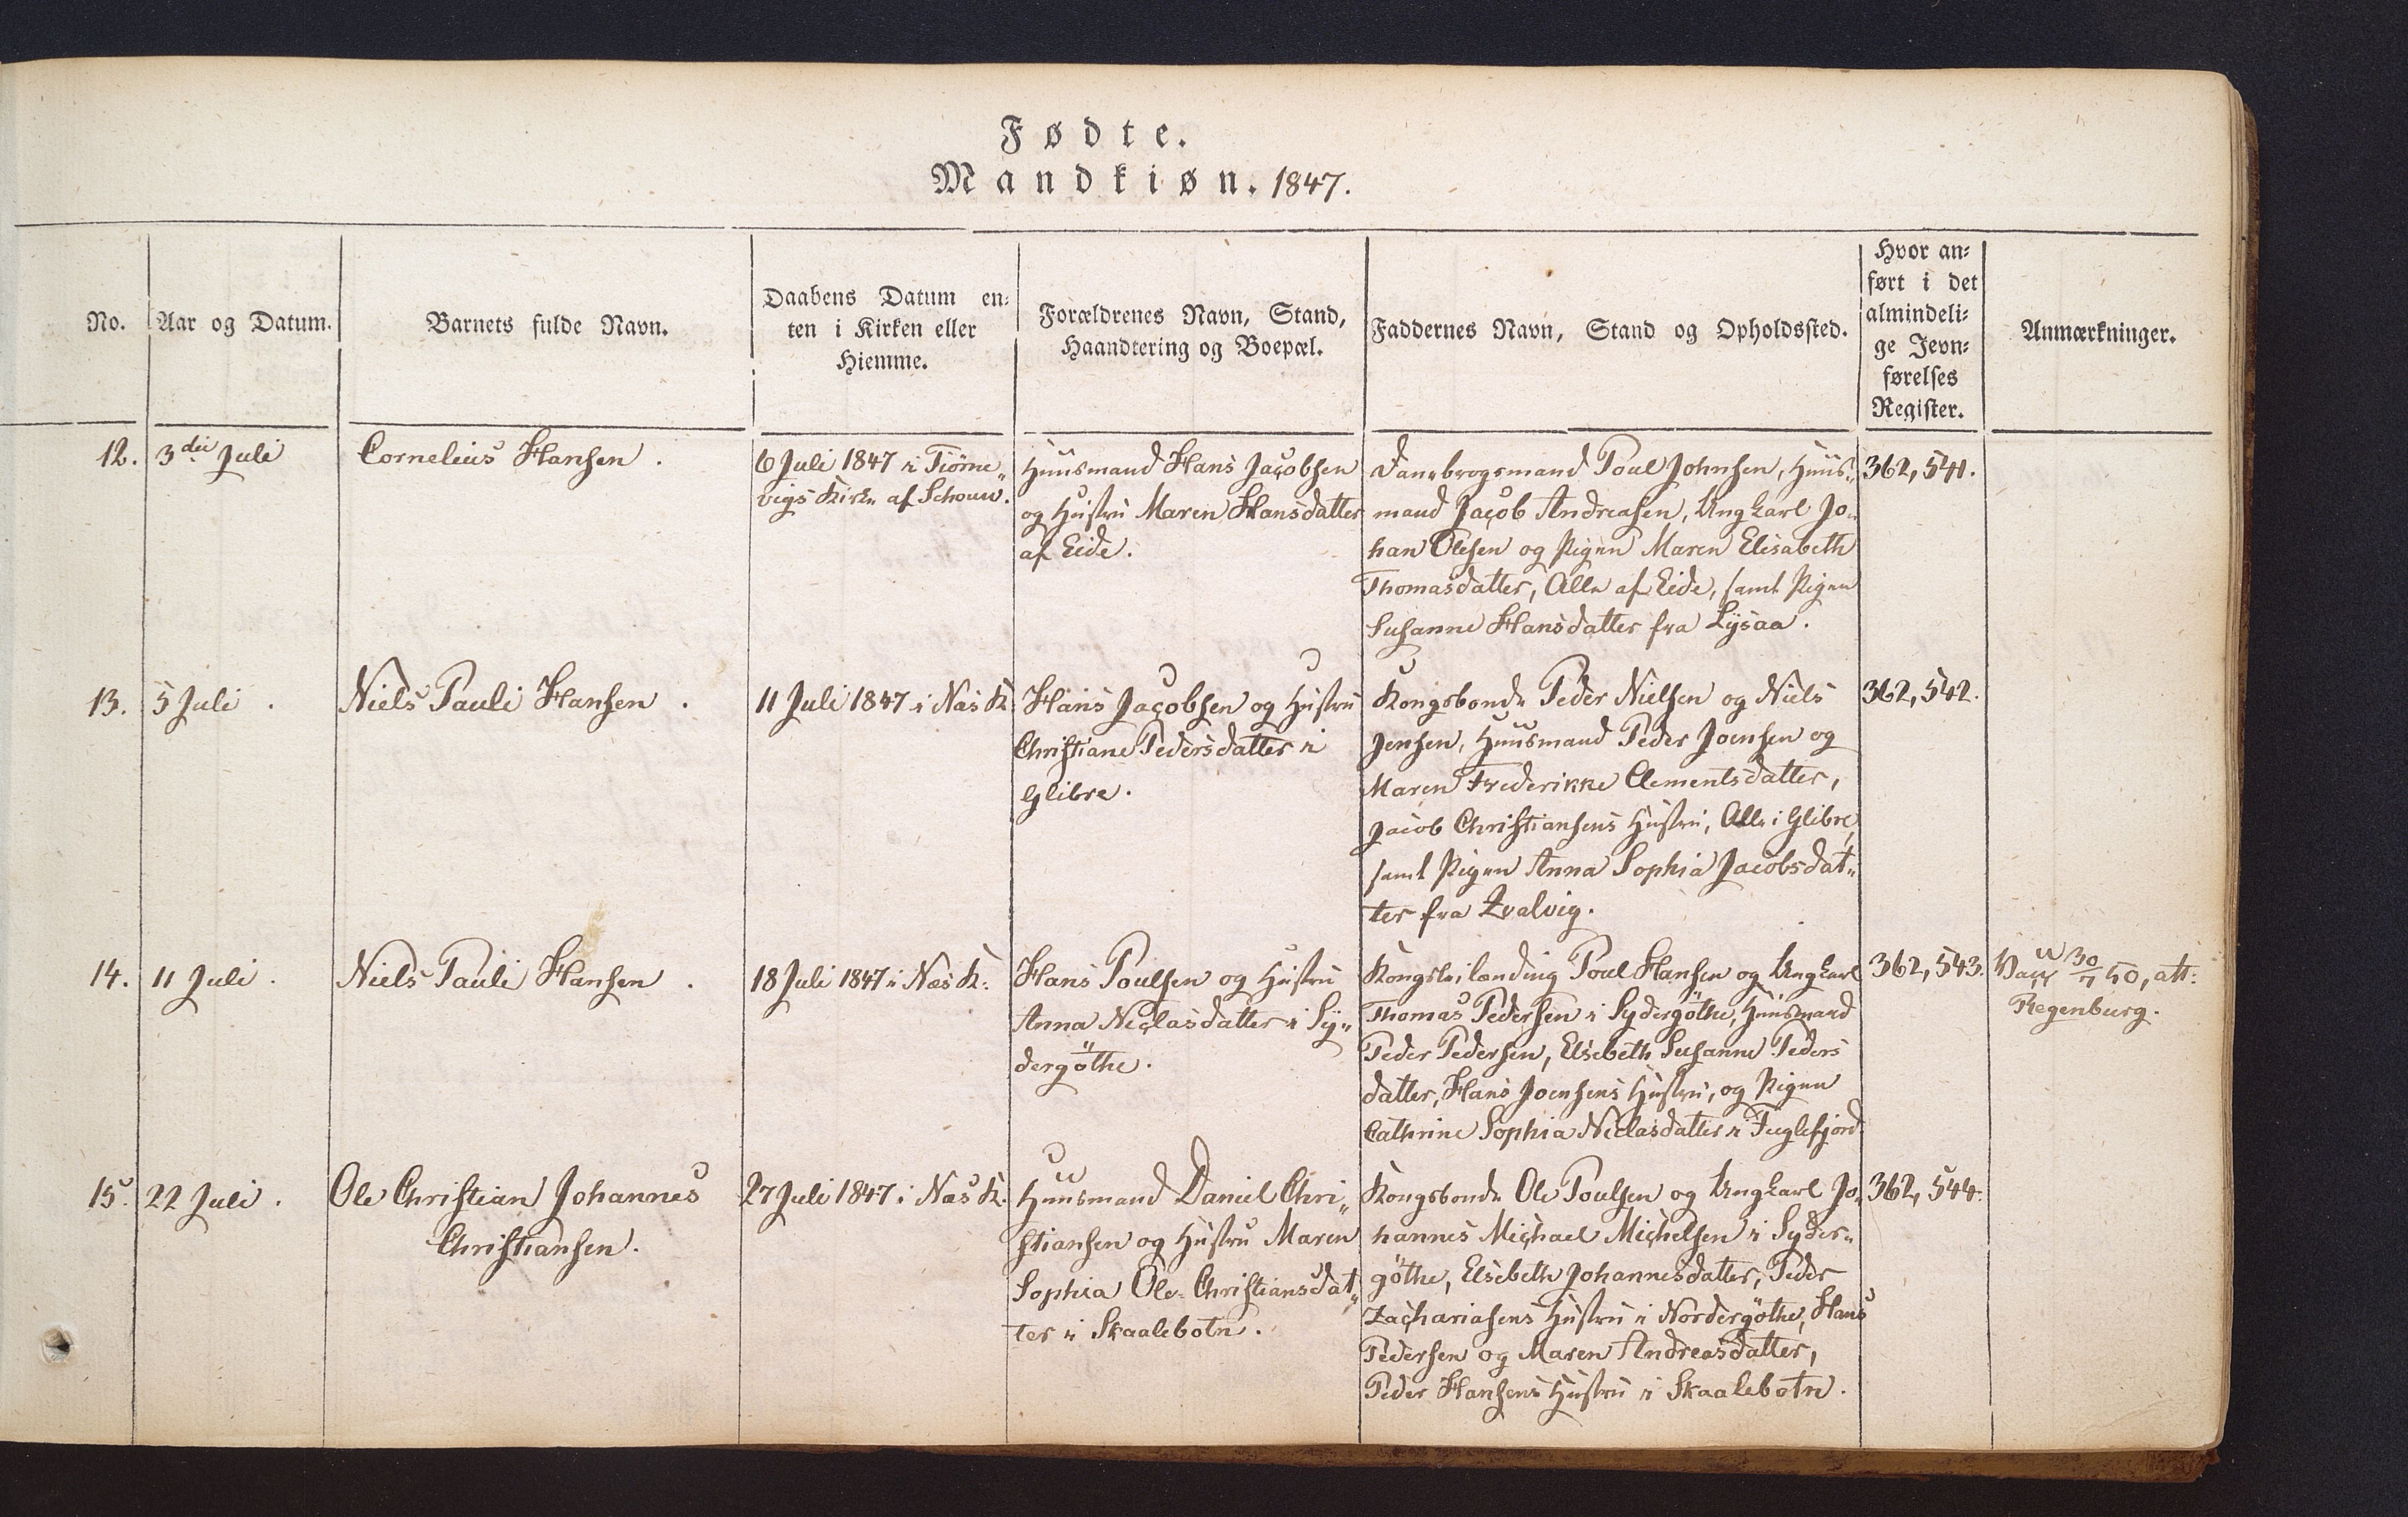 Fødte.
Mandkiøn. 1847.
No.
Aar og Datum.
Barnets fulde Navn.
Daabens Datum en-
ten i Kirken eller
Hiemme.
Forældrenes Navn, Stand,
Haandtering og Boepæl.
Faddernes Navn, Stand og Opholdssted.
Hvor an-
ført i det
almindeli-
ge Jevn-
førelses
Register.
Anmærkninger.
12.
3die Juli
Cornelius Hansen.
6 Juli 1847 i Tiørne„
vigs Kirke af Schouw.
Huusmand Hans Jacobsen
og Hustru Maren Hansdatter
af Eide.
Danebrogsmand Poul Johnsen, Huus„
mand Jacob Andreasen, Ungkarl Jo„
han Olesen og Pigen Maren Elisabeth
Thomasdatter, Alle af Eide, samt Pigen
Susanne Hansdatter fra Lysaa.
362, 541.
13.
5 Juli.
Niels Pauli Hansen.
11 Juli 1847 i Næs K
Hans Jacobsen og Hustru
Christiane Pedersdatter i
Glibre.
Kongsbonde Peder Nielsen og Niels
Jensen, Huusmand Peder Joensen og
Maren Frederikke Clementsdatter,
Jacob Christiansens Hustru, Alle i Glibre,
samt Pigen Anna Sophia Jacobsdat„
ter fra Qvalvig.
362, 542.
14.
11 Juli.
Niels Pauli Hansen.
18 Juli 1847 i Næs K.
Hans Poulsen og Hustru
Anna Niclasdatter i Sy„
dergöthe.
Kongsleilending Poul Hansen og Ungkarl
Thomas Pedersen i Sydergöthe, Huusmand
Peder Pedersen, Elsebeth Susanne Peders
datter, Hans Joensens Hustru, og Pigen
Cathrine Sophia Niclasdatter i Fuglefjord.
362, 543.
30/7 50, att:
Regenburg.
15.
22 Juli.
Ole Christian Johannes
Christiansen.
27 Juli 1847 i Næs K.
Huusmand Daniel Chri„
stiansen og Hustru Maren
Sophia Ole-Christiansdat„
ter i Skaalebotn.
Kongsbonde Ole Poulsen og Ungkarl Jo„
hannes Michael Michelsen i Syder„
göthe, Elsebeth Johannesdatter, Peder
Zachariasens Hustru i Nordergöthe, Hans
Pedersen og Maren Andreasdatter,
Peder Hansens Hustru i Skaalebotn.
362, 544.